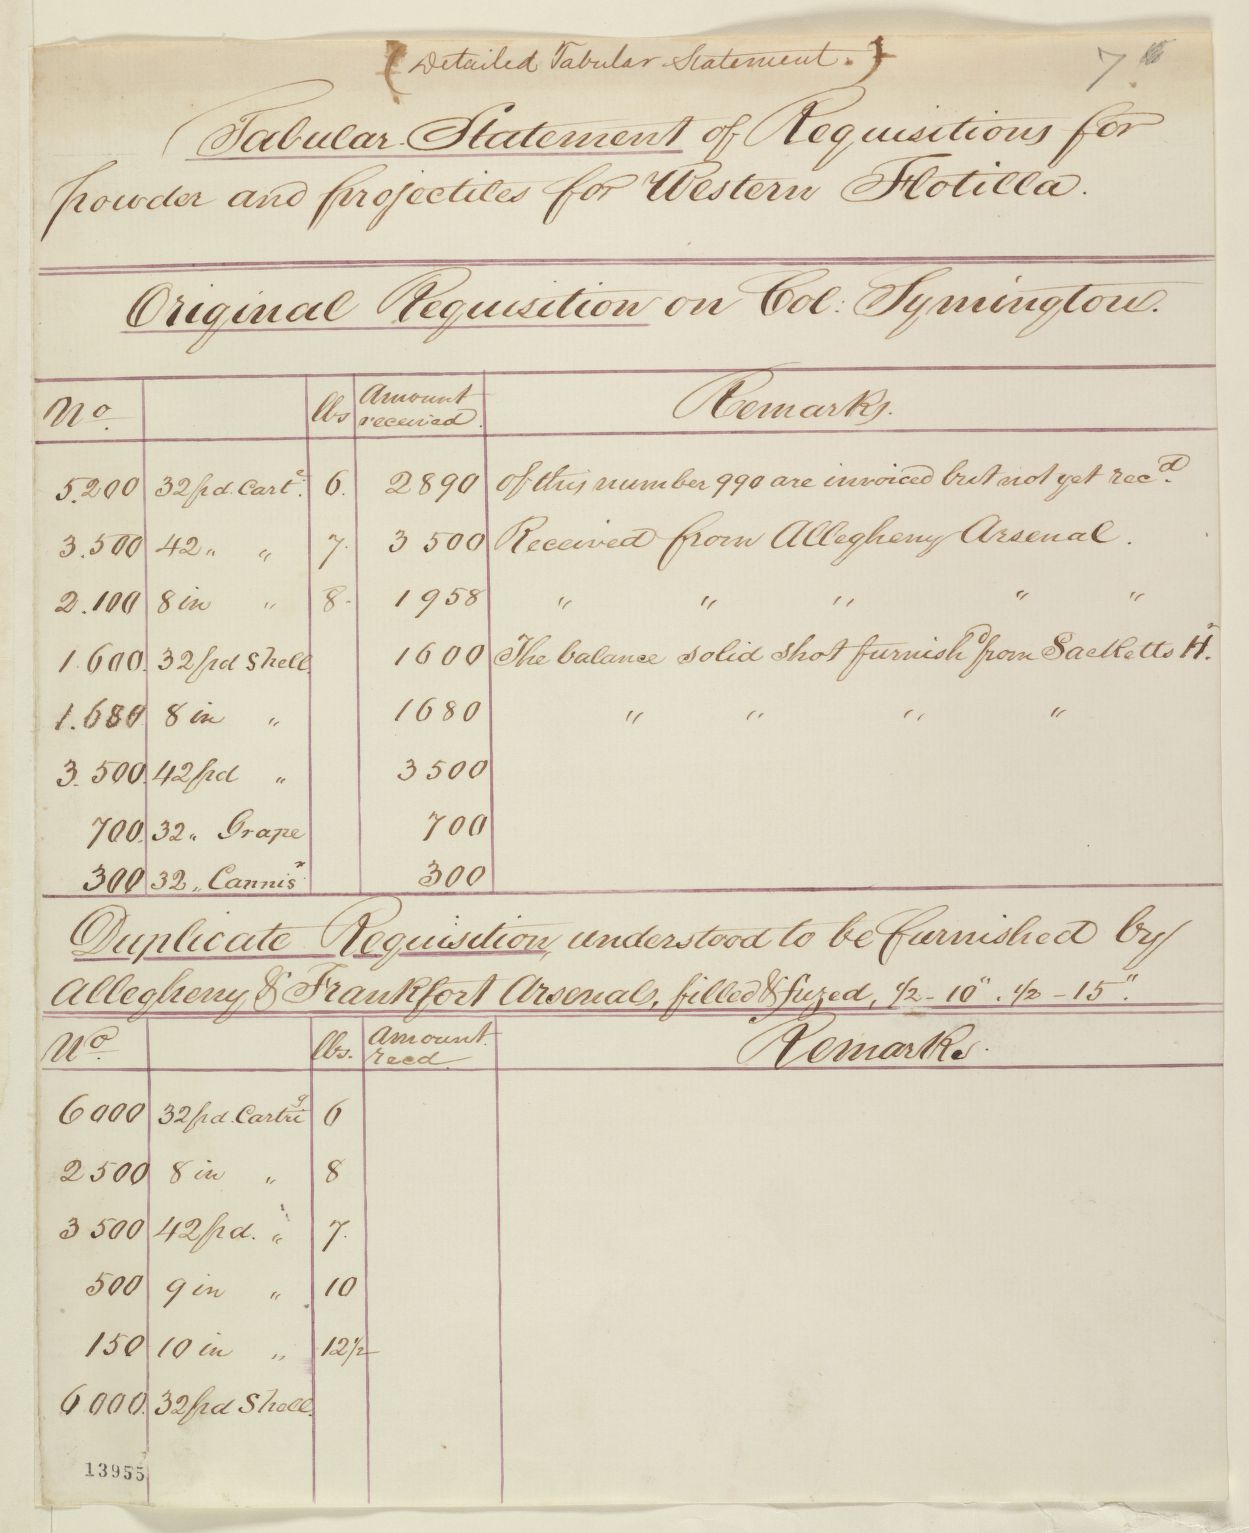 (Detailed Tabular Statement.)
7
Tabular Statement of Requisitions for
powder and projectiles for Western Flotilla.
Original Requisition on Col: Symington.
No. lbs Amount received. Remarks.
5.200 32pd. Cart.e 6. 2890 of this number 990 are invoiced but not yet rec.d
3.500 42 „ „ 7. 3 500 Received from Allegheny Arsenal.
2.100 8 in „ 8. 1958 „ „ „ „ „
1.600. 32pd Shell. 1600 The balance solid shot furnish.d from Sacketts H.r
1.680 8 in „ 1680 „ „ „ „
3.500. 42pd „ 3500
700. 32 „ Grape 700
300 32 „ Cannis.r 300
Duplicate Requisition, understood to be furnished by
Allegheny & Frankfort Arsenals, filled & fuzed, 1/2 - 10". 1/2 - 15".
No. lbs. Amount recd. Remarks.
6000 32pd. Cartrig 6
2500 8 in „ 8
3 500 42pd. „ 7.
500 9 in „ 10
150 10 in „ 12 1/2
6 000. 32pd Shell.
13955